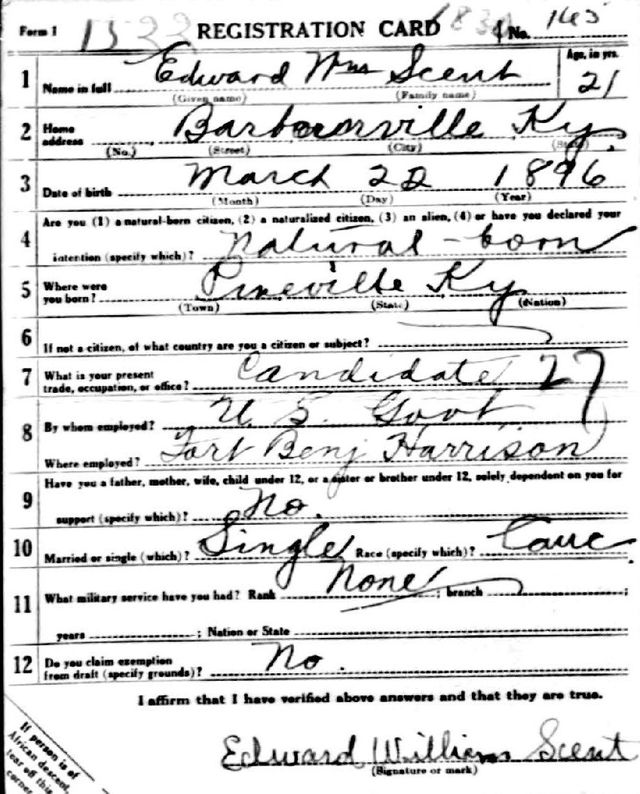 Form 1 1522 REGISTRATION CARD 183 No. 165
1 Name in full Edward Wm Scent Age, in yrs. 21
(Given name) (Family name)
2 Home address Barbourville Ky.
(No.) (Street) (City) (State)
3 Date of birth March 22 1896
(Month) (Day) (Year)
4 Are you (1) a natural-born citizen, (2) a naturalized citizen, (3) an alien, (4) or have you declared your
intention (specify which)? Natural-born
5 Where were you born? Pineville Ky
(Town) (State) (Nation)
6 If not a citizen, of what country are you a citizen or subject?
7 What is your present trade, occupation, or office? Candidate 27
8 By whom employed? U. S. Govt
Where employed? Fort Benj Harrison
9 Have you a father, mother, wife, child under 12, or a sister or brother under 12, solely dependent on you for
support (specify which)? No.
10 Married or single (which)? Single Race (specify which)? Cauc.
11 What military service have you had? Rank None ; branch ;
years ; Nation or State
12 Do you claim exemption from draft (specify grounds)? No.
I affirm that I have verified above answers and that they are true.
Edward Williams Scent
(Signature or mark)
If person is of
African descent,
tear off this
corner.